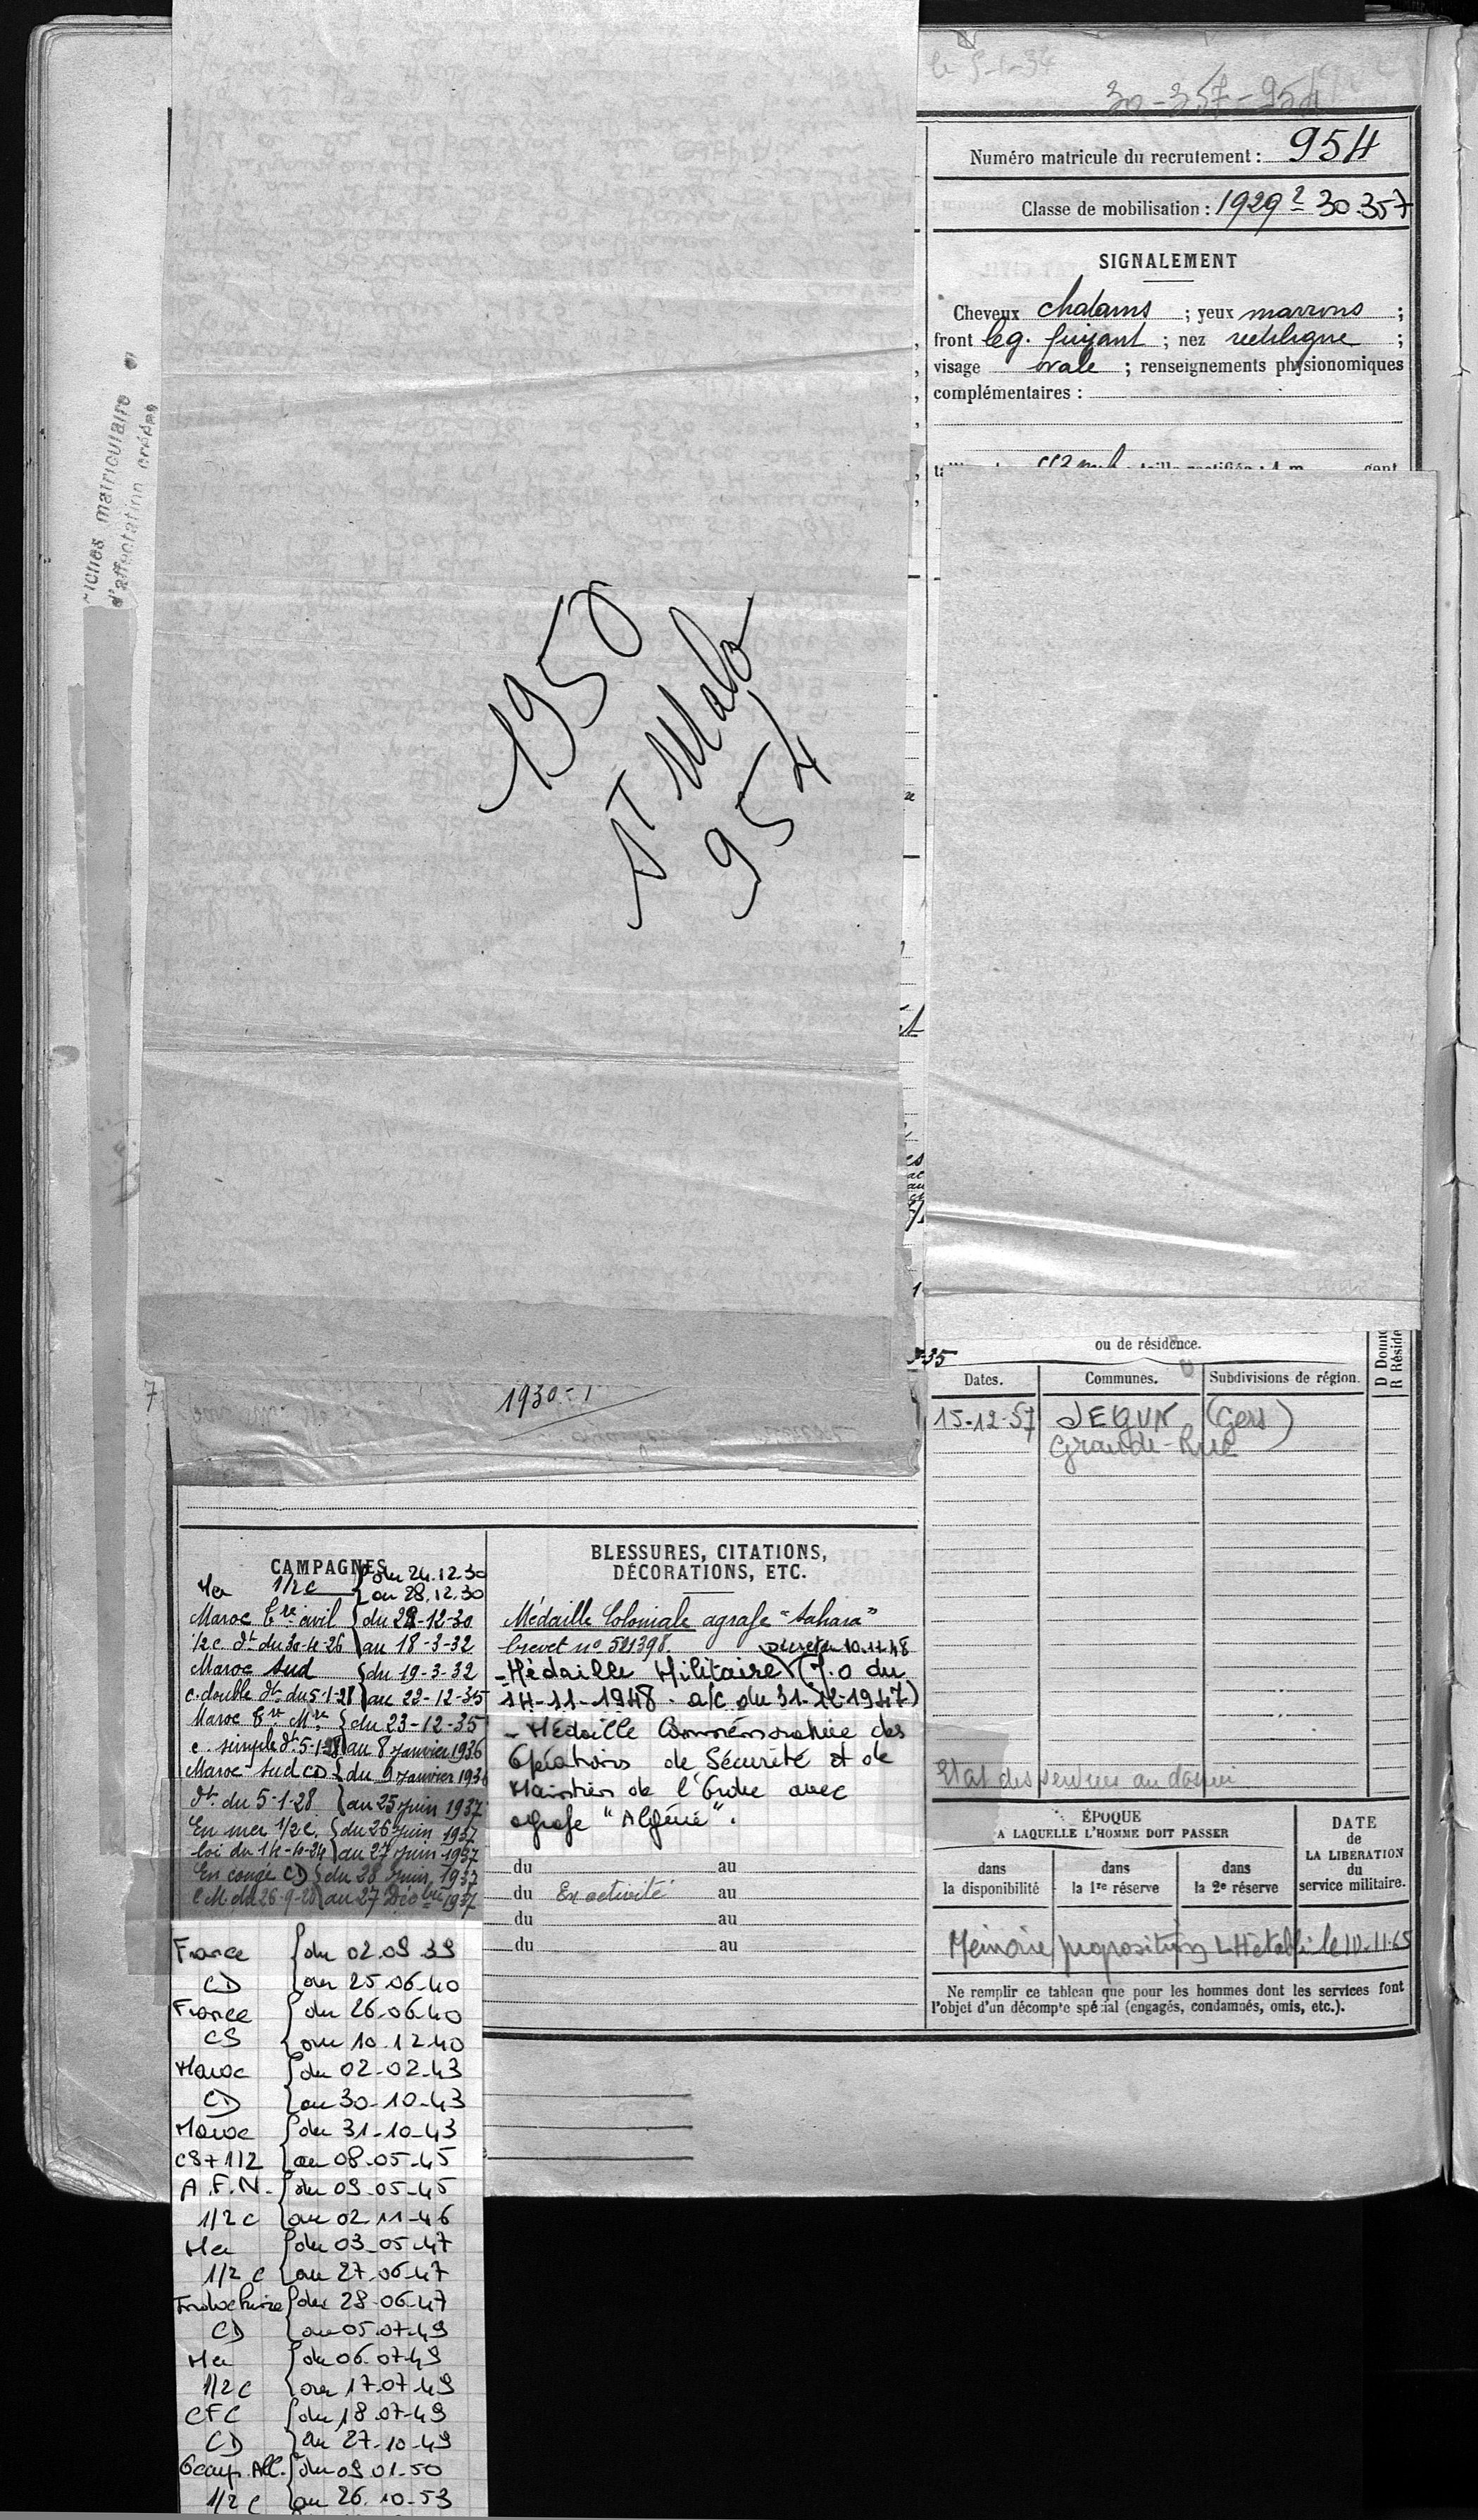 le 5-1-34
30-357-954
Numéro matricule du recrutement : 954
Classe de mobilisation : 1929 2 30.357
SIGNALEMENT
Cheveux chatains ; yeux marrons ;
front leg. fuyant ; nez rectiligne ;
visage ovale ; renseignements physionomiques
complémentaires :
matriculaire
d'affectation créées
1950
St Malo
954
1930-1
ou de résidence.
D Domic
R Réside
Dates.
Communes.
Subdivisions de région.
15-12-57 JEGUN (Gers)
Grande-Rue
CAMPAGNES
Mer 1/2 c du 24.12.30
au 28.12.30
Maroc tre civil du 29-12-30
1/2 c. dt du 30-4-26 au 18-3-32
Maroc Sud du 19-3-32
c. double dt du 5-1-28 au 22-12-35
Maroc tre Mre du 23-12-35
c. simple dt 5-1-28 au 8 janvier 1936
Maroc Sud CD du 9 janvier 1936
dt du 5-1-28 au 25 juin 1937
En mer 1/2 c. du 26 juin 1937
loi du 14-4-24 au 27 juin 1937
En congé CD du 28 juin 1937
C.M. du 26-9-28 au 27 Décbre 1937
France du 02.09.39
CD au 25.06.40
France du 26.06.40
CS au 10.12.40
Maroc du 02-02-43
CD au 30-10-43
Maroc du 31-10-43
CS+1/2 au 08-05-45
A.F.N. du 09-05-45
1/2 c au 02 11-46
Mer du 03-05-47
1/2 c au 27-06-47
Indochine du 28-06-47
CD au 05.07.49
Mer du 06.07.49
1/2 c au 17.07.49
CFC du 18.07-49
CD au 27-10-49
Occup. All. du 09 01-50
1/2 c au 26.10-53
BLESSURES, CITATIONS,
DÉCORATIONS, ETC.
Médaille Coloniale agrafe "Sahara"
brevet no 521398.
Décret du 10.11.48
- Médaille Militaire (J.O du
14-11-1948. a/c du 31-12-1947)
- Médaille Commémorative des
Opérations de Sécurité et de
Maintien de l'Ordre avec
agrafe "Algérie".
du au
du En activité au
du au
du au
Etat des services au dossier
ÉPOQUE
A LAQUELLE L'HOMME DOIT PASSER
dans
la disponibilité
dans
la 1re réserve
dans
la 2e réserve
DATE
de
LA LIBÉRATION
du
service militaire.
Mémoire proposition LH établi le 10.11.65
Ne remplir ce tableau que pour les hommes dont les services font
l'objet d'un décompte spécial (engagés, condamnés, omis, etc.).